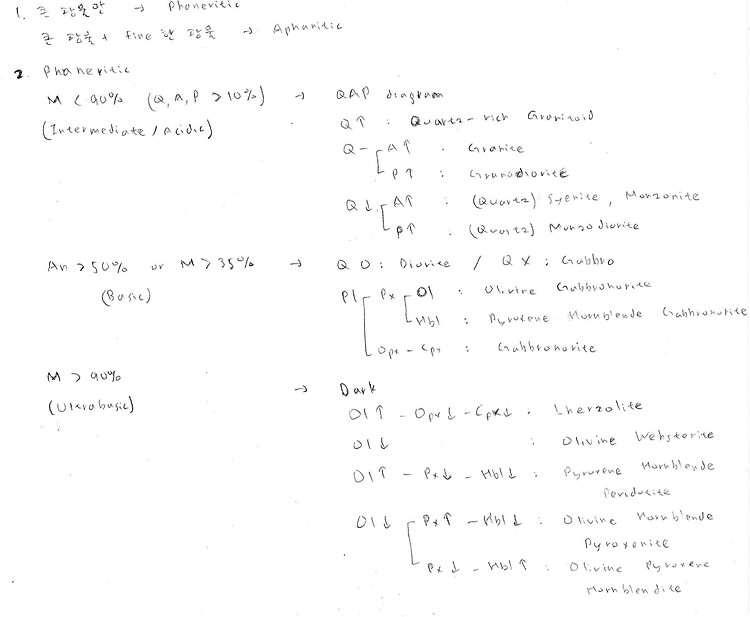 1. 큰 광물만 → Phaneritic
큰 광물 + fine 한 광물 → Aphanitic
2. Phaneritic
M < 90% (Q, A, P > 10%) → QAP diagram
(Intermediate / Acidic) Q↑ : Quartz-rich Granitoid
Q - A↑ : Granite
P↑ : Granodiorite
Q↓ A↑ : (Quartz) Syenite, Monzonite
P↑ : (Quartz) Monzodiorite
An > 50% or M > 35% → Q O : Diorite / Q X : Gabbro
(Basic) Pl Px Ol : Olivine Gabbronorite
Hbl : Pyroxene Hornblende Gabbronorite
Opx - Cpx : Gabbronorite
M > 90% → Dark
(Ultrabasic) Ol↑ - Opx↓ - Cpx↓ : Lherzolite
Ol↓ : Olivine Websterite
Ol↑ - Px↓ - Hbl↓ : Pyroxene Hornblende
Peridotite
Ol↓ Px↑ - Hbl↓ : Olivine Hornblende
Pyroxenite
Px↓ - Hbl↑ : Olivine Pyroxene
Hornblendite